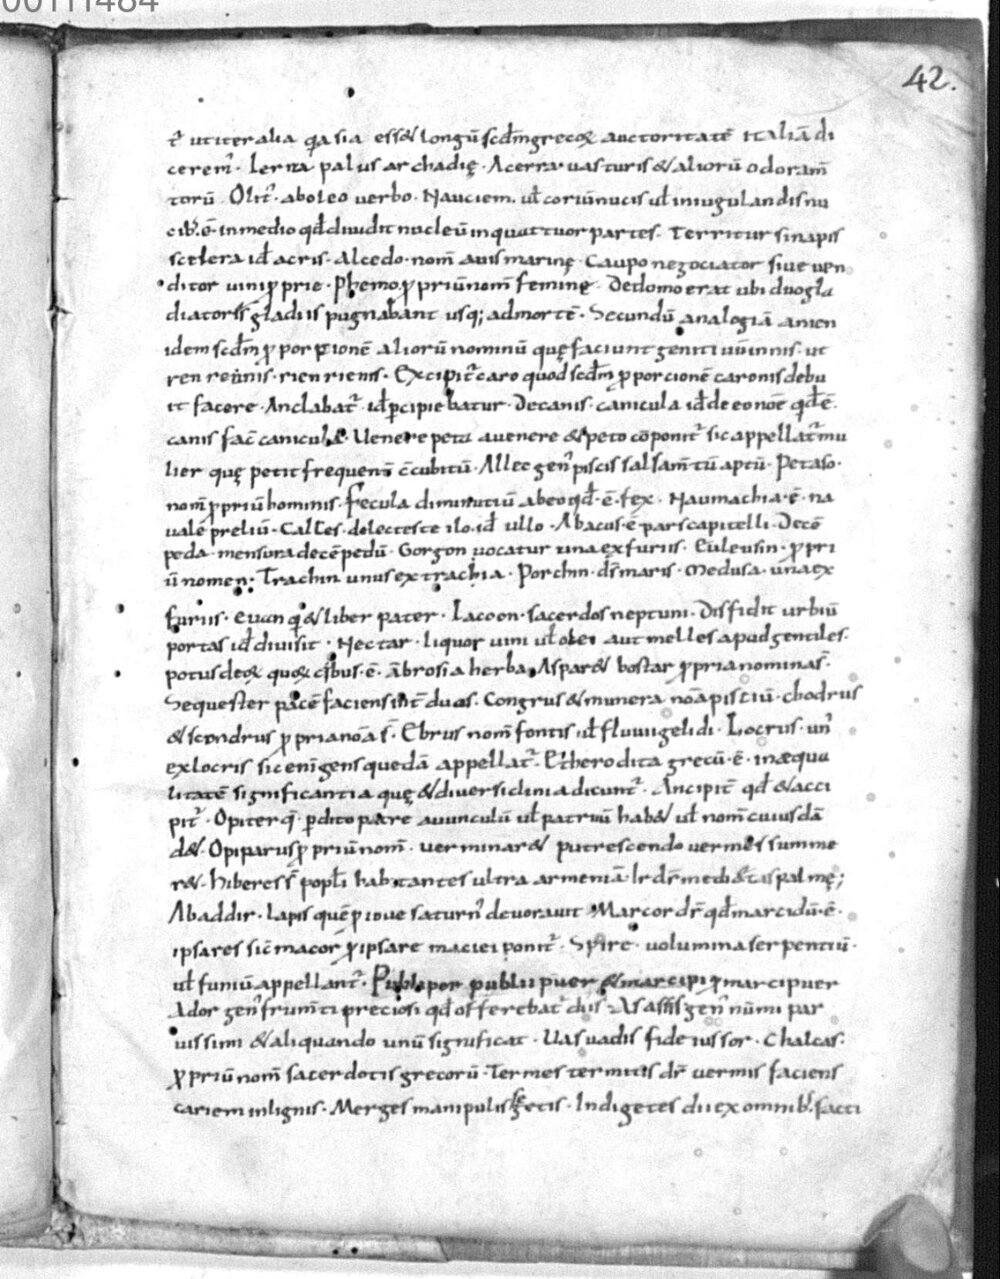 00111484
42.
t̄ ut iter alia q̄a sia ess& longū scd̄m grecoꝝ auctoritatē italiā di
cerem̄. Lerna palus archadię. Acerra uas turis & aliorū odoram̄
torū. Olit̄. aboleo uerbo. Nauciem. ul̄ coriū nucis ul̄ iniugulandis nu
cib; ē. in medio qd̄ diuidit nucleū in quattuor partes. Territur sinapis
scelera id̄ acris. Alcedo. nom̄ auis marinę. Caupo negociator siue uen
ditor uini ꝓprie. Phemo ꝓpriū nom̄ feminę. Dedomo erat ubi duo gla
diatores gladiis pugnabant usq; ad mortē. Secundū analogiā anien
idem scd̄m ꝓporcionē aliorū nominū quę faciunt geniti uū in nis. ut
ren renis. rien rienis. Excipit̄ caro quod scd̄m ꝓporcionē caronis debu
it facere. Anclabat̄. id̄ ꝑcipiebatur. De canis. canicula id̄ de eo noē qd̄ ē.
canis fac̄ canicula. Uenerepeta a uenere & peto cōponit̄ sic appellat̄ mu
lier quę petit frequent̄ c̄cubitū. Allec gen̄ piscis salsam̄tū aptū. Petaso.
nom̄ ꝓpriū hominis. Fecula diminutiū ab eo qd̄. ē. fex. Naumachia. ē. na
uale preliū. Calles. dolecteste ilo. id̄ ullo. Abacus. ē pars capitelli. Decē
peda. mensura decē pedū. Gorgon uocatur una ex furiis. Euleusin. ꝓpri
ū nomen. Trachin unus ex trachia. Porchin. dr̄ maris. Medusa. una ex
furiis. euan q̄ & liber pater. Lacoon. sacerdos neptuni. Diffidit urbiū
portas id̄ diuisit. Nectar. liquor uini ul̄ olei aut melles apud gentiles.
potus deoꝝ quoꝝ cibus. ē. ābrosia herba. Aspar & bostar ꝓpria nomina s̄.
Sequester pacē faciens int̄ duos. Congrus & munera noā pisciū. chodrus
& scondrus ꝓpria noā s̄. Ebrus nom̄ fontis ul̄ fluuii gelidi. Locrus. un̄
ex locris sic enī gens quedā appellat̄. Etherodita grecū. ē. inæqua
litatē significantia quę & diuersiclinia dicunt̄. Ancipit̄ qd̄ & acci
pit̄. Opiter q̄. ꝑdito patre auunculū ul̄ patruū hab& ul̄ nom̄ cuiusdā
d&. Opiparus ꝓpriū nom̄. uerminar& putrescendo uermes summe
r&. Hiberes s̄ popl̄i habitantes ultra armeniā lr̄ dr̄ medi&as palmę;
Abaddir. lapis quē ꝓ ioue saturn̄ deuorauit. Marcor dr̄ qd̄ marcidū. ē.
ips ares sic̄ macor ꝓ ipsa re maciei ponit̄. Spire. uolumina serpentiū.
ul̄ funiū appellant̄. Publipor publii puer & marcipi ꝓ marci puer
Ador gen̄ frum̄ti preciosi qd̄ offerebat̄ diis. As assis gen̄ nūmi par
uissimi & aliquando unū significat. Uas uadis fideiussor. Chalcas.
ꝓpriū nom̄ sacerdotis grecorū. Termes termitis dr̄ uermis faciens
cariem in lignis. Merges manipulis segetis. Indigetes dii ex omnib; facti